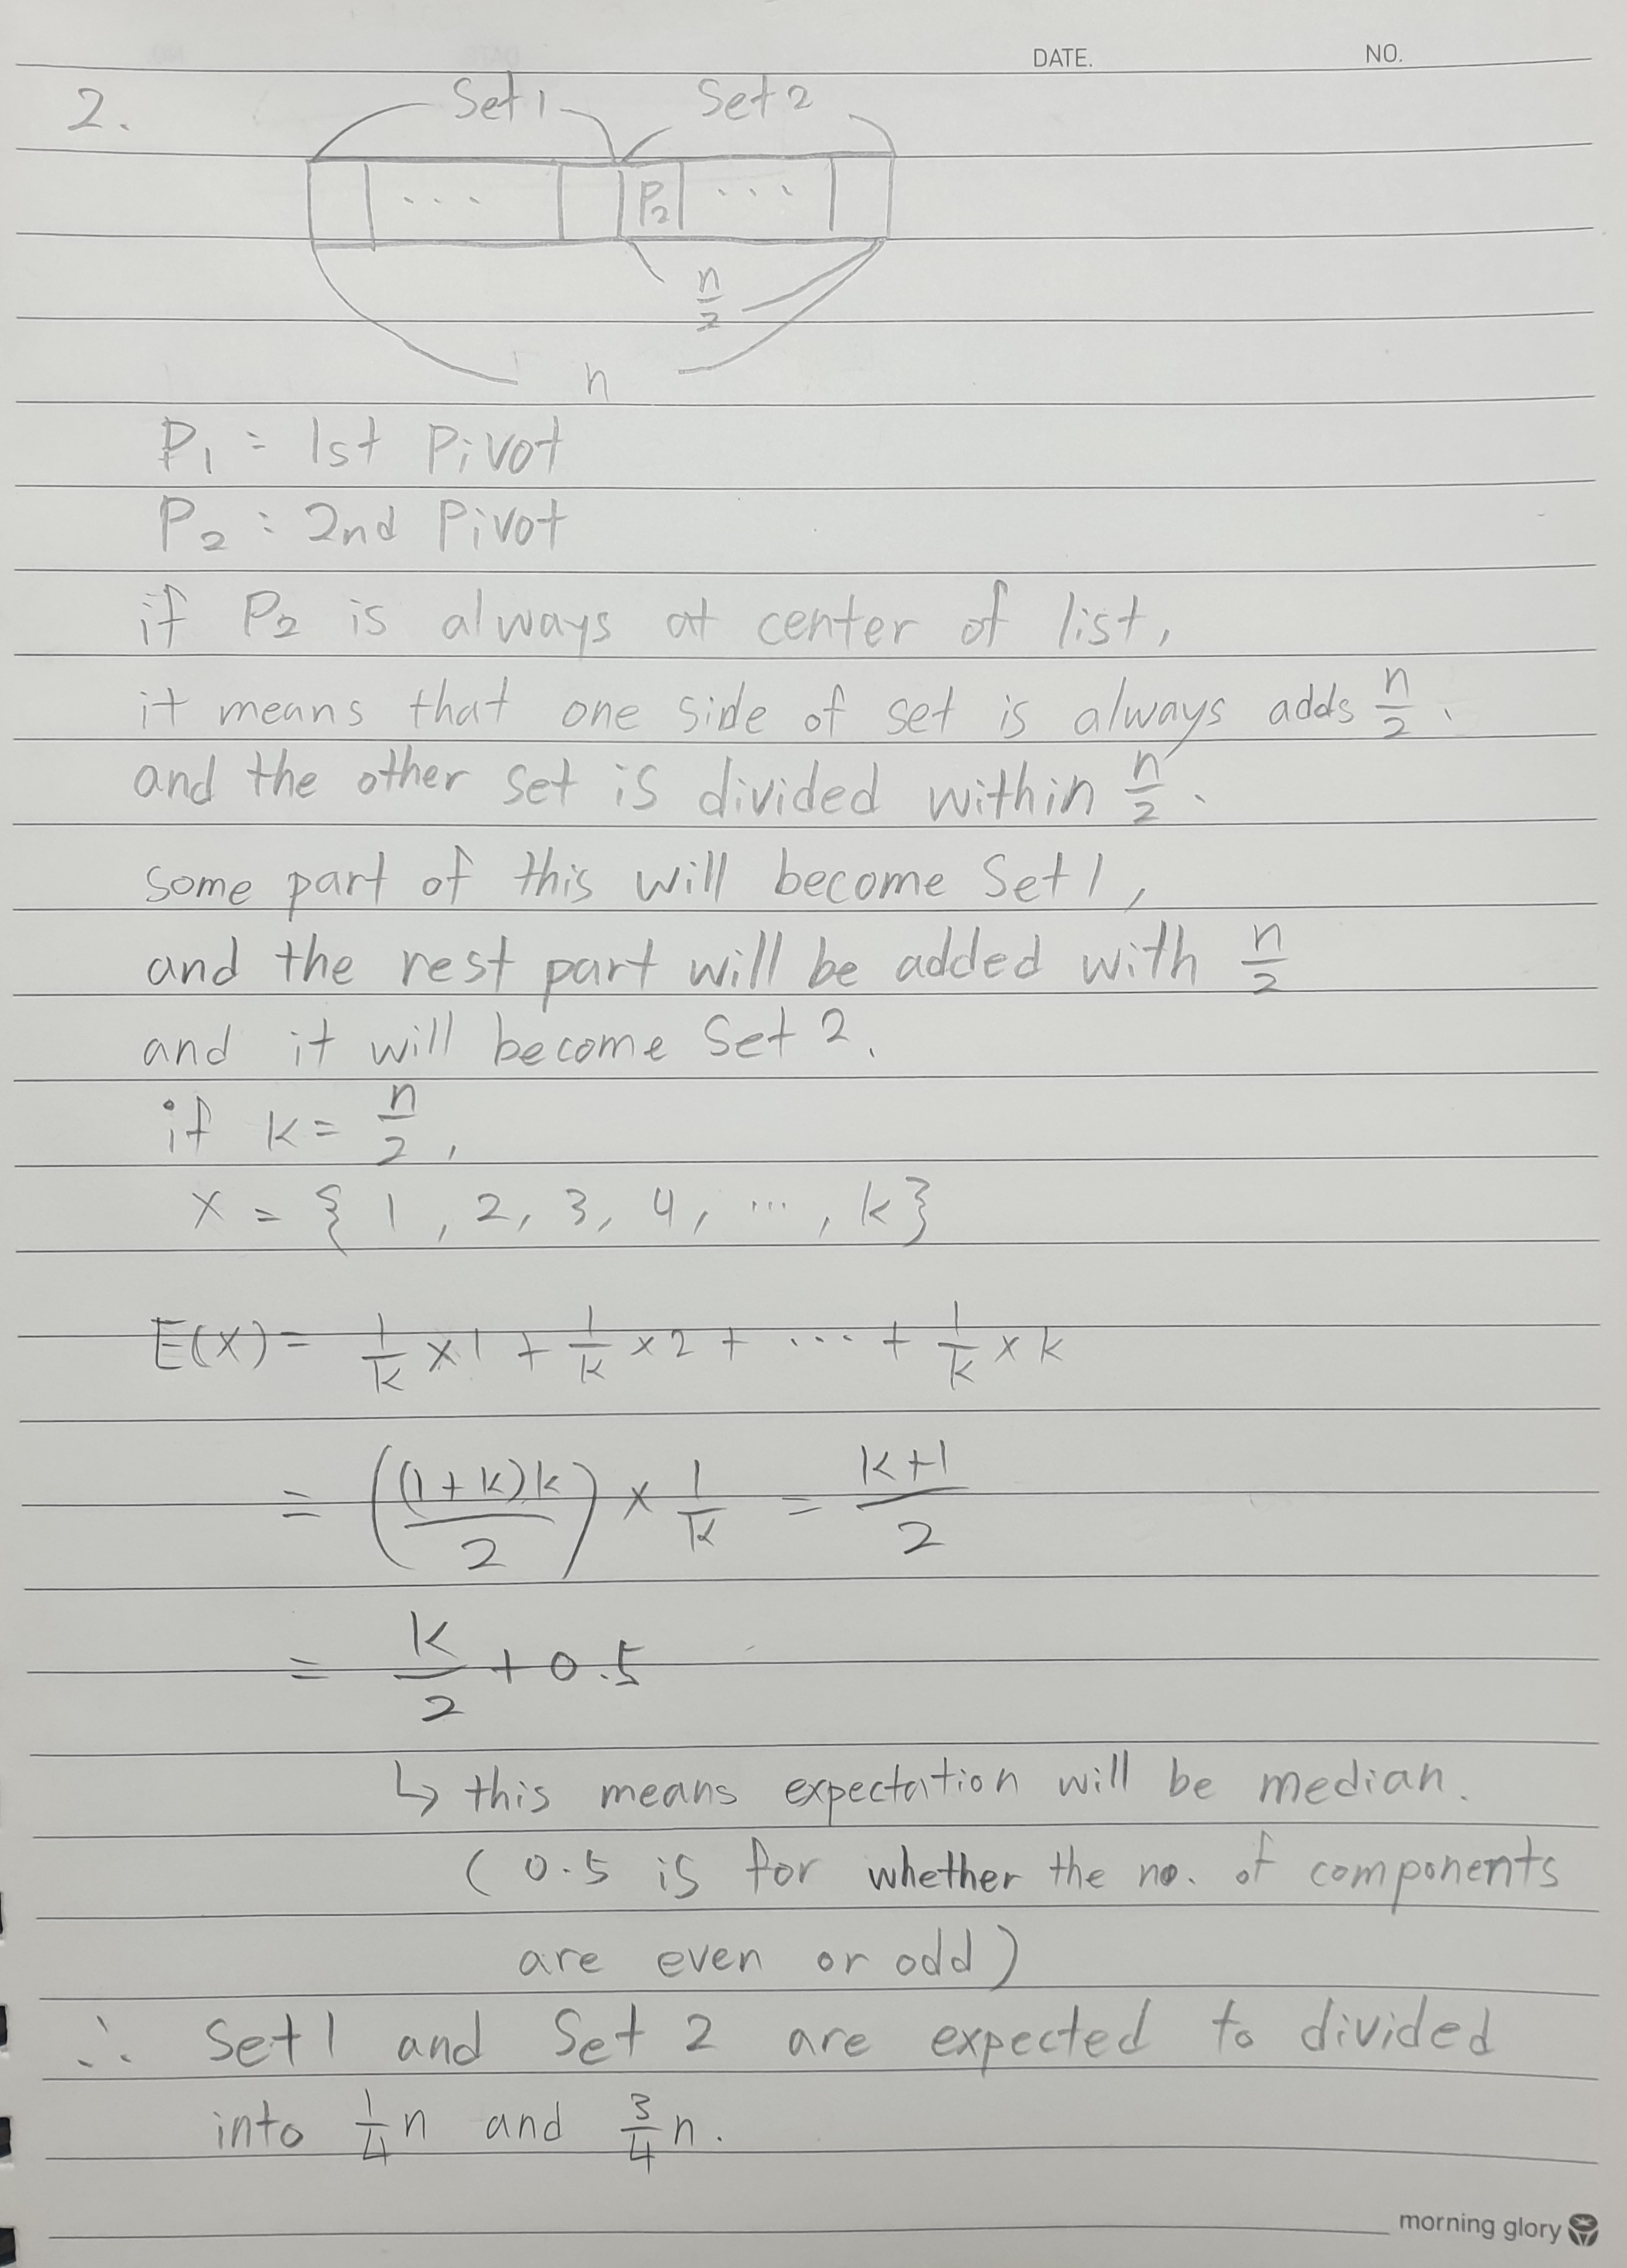 DATE. NO.
2.
Set 1 Set 2
... P₂ ...
n/2
n
P₁ : 1st Pivot
P₂ : 2nd Pivot
if P₂ is always at center of list,
it means that one side of set is always adds n/2.
and the other set is divided within n/2.
some part of this will become Set 1,
and the rest part will be added with n/2
and it will become Set 2.
if k = n/2,
X = { 1, 2, 3, 4, ..., k }
E(X) = 1/k × 1 + 1/k × 2 + ... + 1/k × k
= ((1+k)k/2) × 1/k = (k+1)/2
= k/2 + 0.5
↳ this means expectation will be median.
( 0.5 is for whether the no. of components
are even or odd )
∴ Set 1 and Set 2 are expected to divided
into 1/4 n and 3/4 n.
morning glory